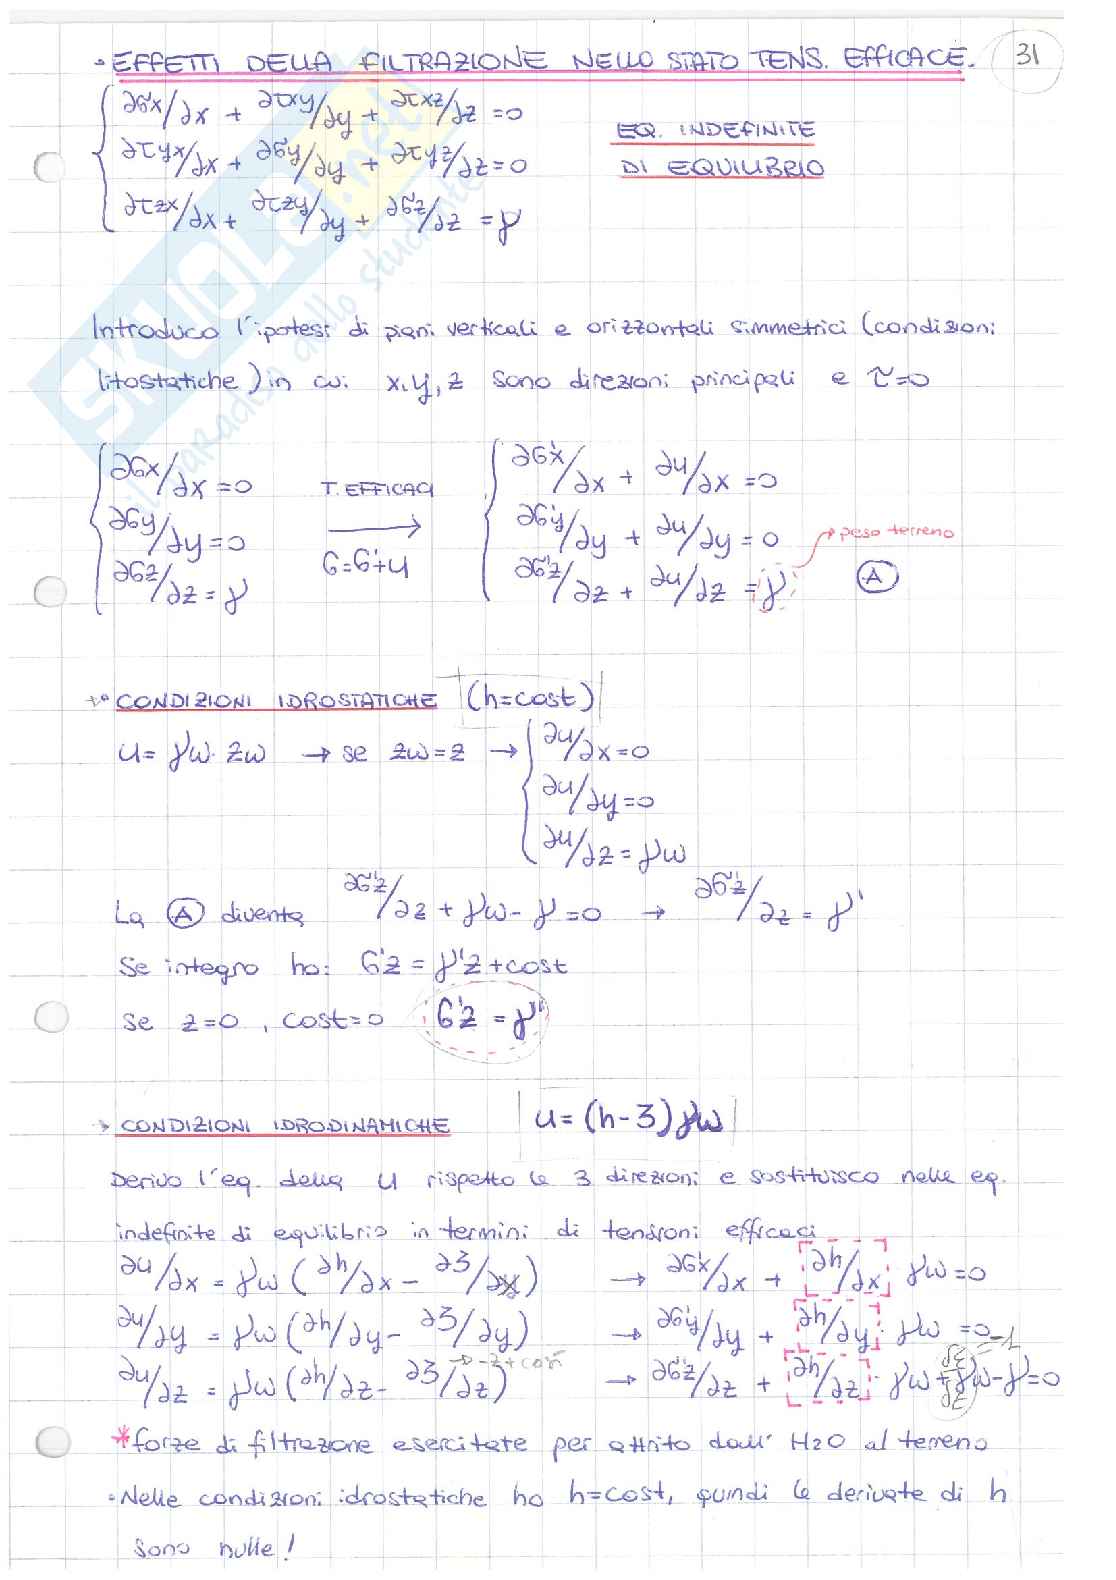 • EFFETTI DELLA FILTRAZIONE NELLO STATO TENS. EFFICACE. 31
∂σx/∂x + ∂τxy/∂y + ∂τxz/∂z = 0
EQ. INDEFINITE
∂τyx/∂x + ∂σy/∂y + ∂τyz/∂z = 0
DI EQUILIBRIO
∂τzx/∂x + ∂τzy/∂y + ∂σz/∂z = γ
Introduco l'ipotesi di piani verticali e orizzontali simmetrici (condizioni
litostatiche) in cui x, y, z sono direzioni principali e τ=0
∂σx/∂x = 0 T. EFFICACI ∂σ'x/∂x + ∂u/∂x = 0
∂σy/∂y = 0 → ∂σ'y/∂y + ∂u/∂y = 0 → peso terreno
∂σz/∂z = γ σ=σ'+u ∂σ'z/∂z + ∂u/∂z = γ A
CONDIZIONI IDROSTATICHE (h=cost)
u = γw · zw → se zw = z → ∂u/∂x = 0
∂u/∂y = 0
∂u/∂z = γw
La A diventa ∂σ'z/∂z + γw - γ = 0 → ∂σ'z/∂z = γ'
Se integro ho: σ'z = γ'z + cost
Se z=0, cost=0 σ'z = γ'
→ CONDIZIONI IDRODINAMICHE u = (h-3)γw
Derivo l'eq. della u rispetto le 3 direzioni e sostituisco nelle eq.
indefinite di equilibrio in termini di tensioni efficaci
∂u/∂x = γw (∂h/∂x - ∂3/∂x) → ∂σ'x/∂x + ∂h/∂x γw = 0
∂u/∂y = γw (∂h/∂y - ∂3/∂y) → ∂σ'y/∂y + ∂h/∂y · γw = 0 -1
∂u/∂z = γw (∂h/∂z - ∂3/∂z) → -z + cost → ∂σ'z/∂z + ∂h/∂z · γw + γw - γ = 0
*forze di filtrazione esercitate per attrito dall' H2O al terreno
• Nelle condizioni idrostatiche ho h=cost, quindi le derivate di h
sono nulle!
SKUOLA.net
il paradiso dello studente